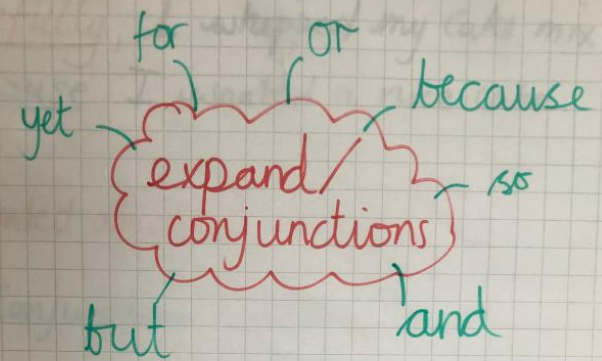 for or
because
yet
expand/
so
conjunctions
but and